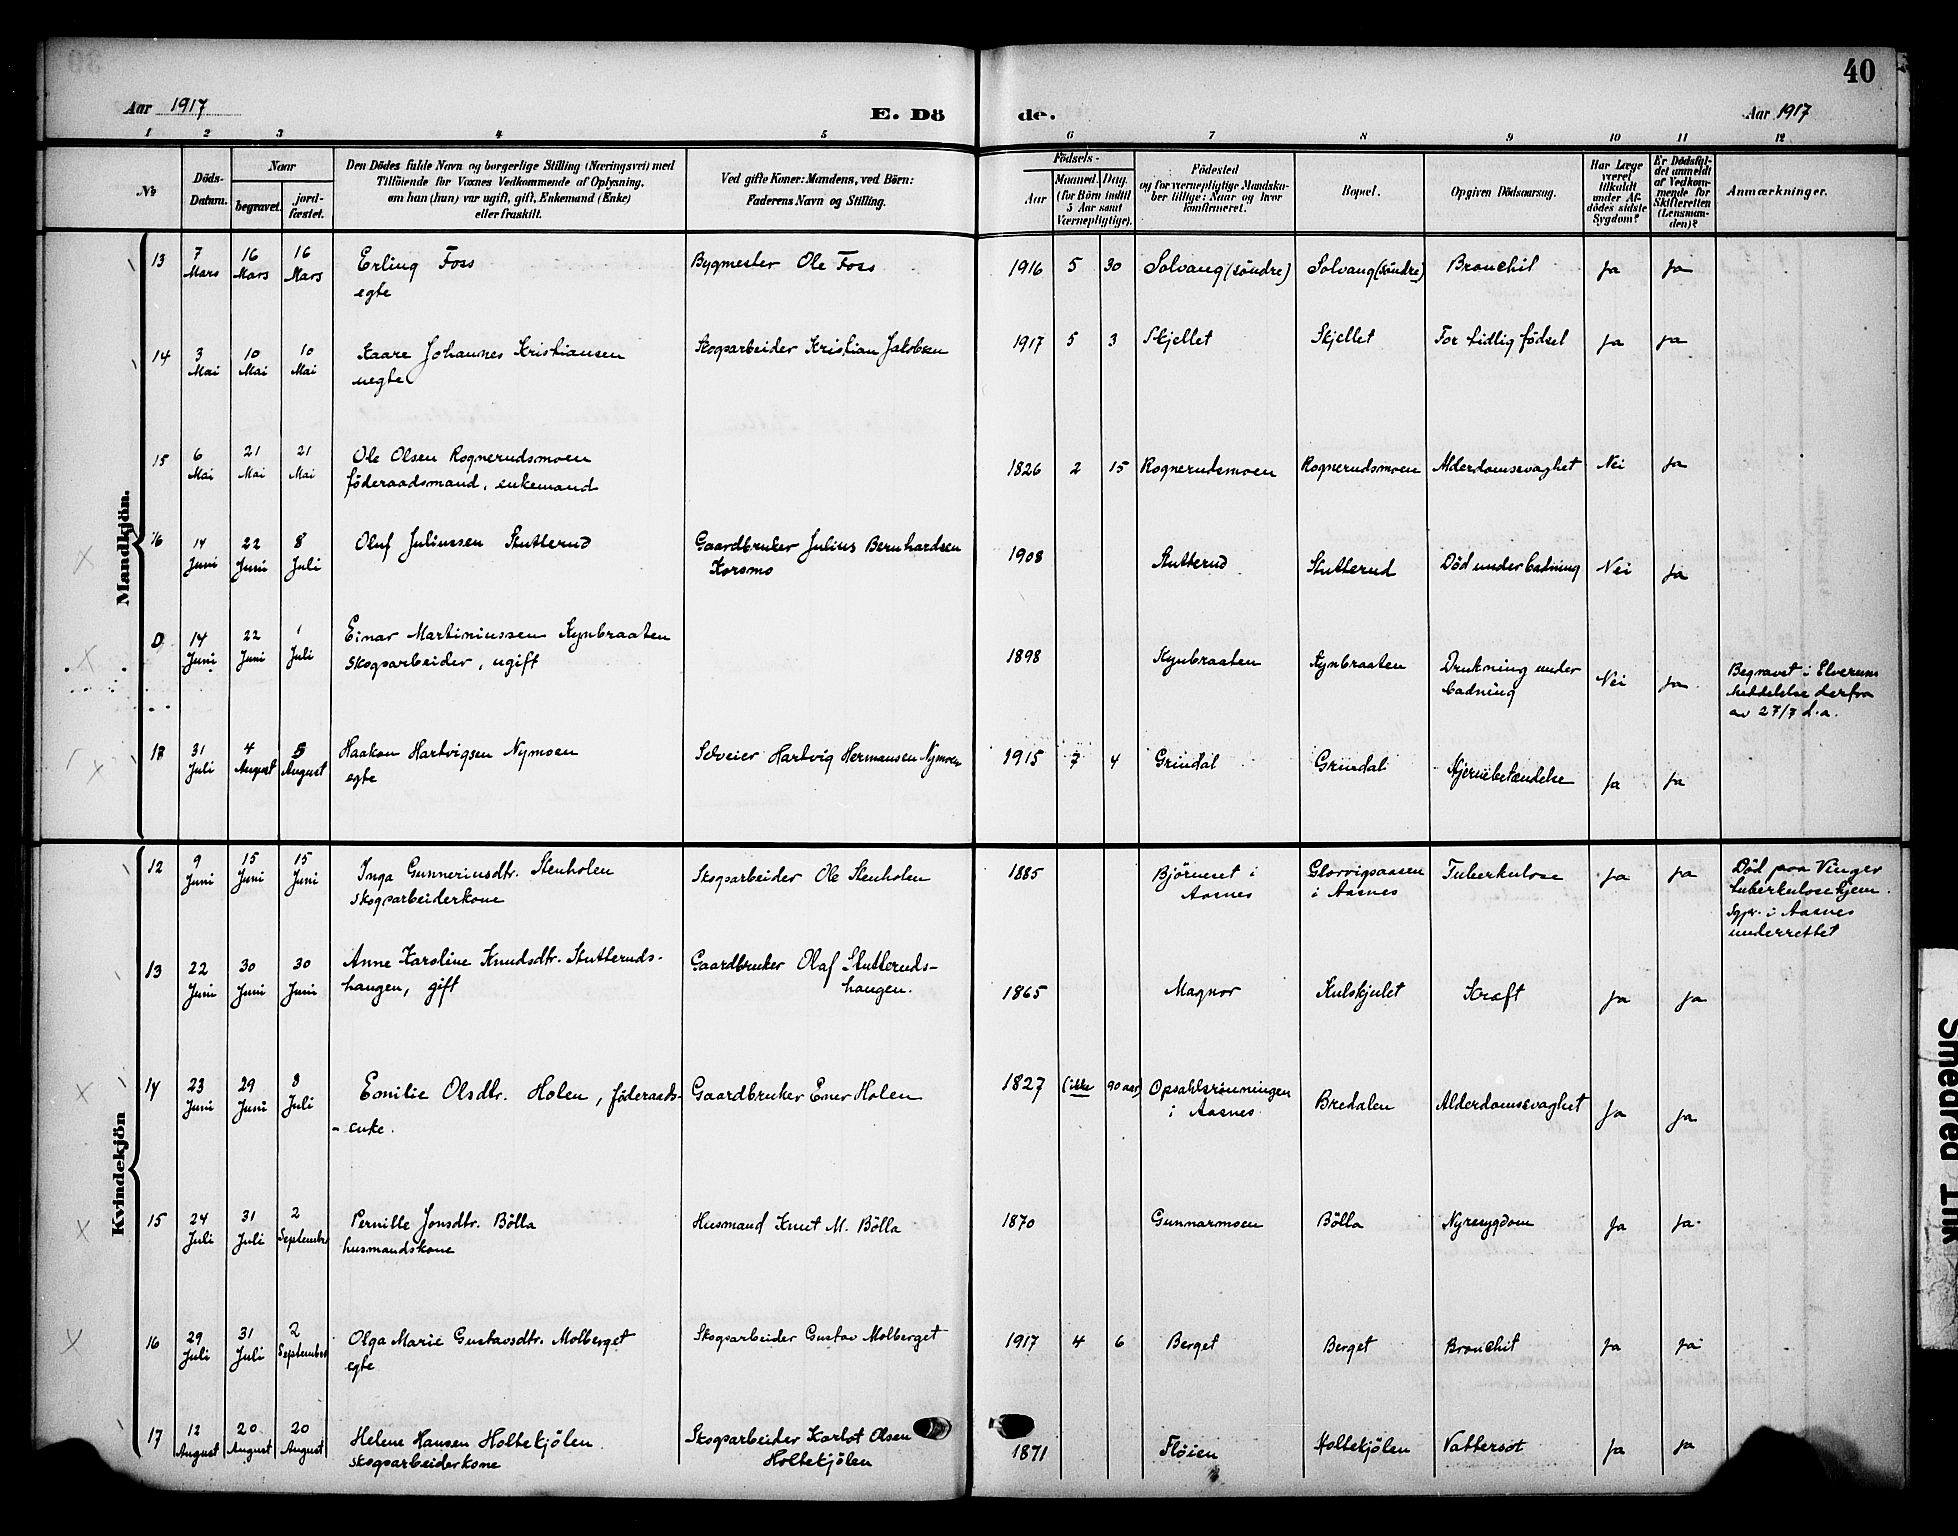 40
Aar 1917
E. Dö
de.
Aar 1917
1 2 3 4 5 6 7 8 9 10 11 12
No
Döds-
Datum.
Naar
begravet.
jord-
fæstet.
Den Dödes fulde Navn og borgerlige Stilling (Næringsvei) med
Tilföiende for Voxnes Vedkommende af Oplysning,
om han (hun) var ugift, gift, Enkemand (Enke)
eller fraskilt.
Ved gifte Koner: Mandens, ved Börn:
Faderens Navn og Stilling.
Födsels-
Aar
Maaned. Dag.
(for Börn indtil
5 Aar samt
Værnepligtige).
Födested
og for værnepligtige Mandska-
ber tillige: Naar og hvor
konfirmeret.
Bopæl.
Opgiven Dödsaarsag.
Har Læge
været
tilkaldt
under Af-
dödes sidste
Sygdom?
Er Dödsfal-
det anmeldt
af Vedkom-
mende for
Skifteretten
(Lensman-
den)?
Anmærkninger.
Mandkjön.
13 7 Mars 16 Mars 16 Mars Erling Foss Bygmester Ole Foss 1916 5 30 Solvang (søndre) Solvang (søndre) Bronchit Ja Ja
egte
14 3 Mai 10 Mai 10 Mai Kaare Johannes Kristiansen Skogsarbeider Kristian Jakobsen 1917 5 3 Skjellet Skjellet For tidlig fødsel Ja Ja
uegte
15 6 Mai 21 Mai 21 Mai Ole Olsen Rognerudsmoen 1826 2 15 Rognerudsmoen Rognerudsmoen Alderdomssvaghet Nei Ja
föderaadsmand, enkemand
16 14 Juni 22 Juni 8 Juli Oluf Juliussen Stutterud Gaardbruker Julius Bernhardsen 1908 Stutterud Stutterud Død under badning Nei Ja
Korsmo
0 14 Juni 22 Juni 1 Juli Einar Martiniussen Kynbraaten 1898 Kynbraaten Kynbraaten Drukning under Nei Ja Begravet i Elverum
Skogsarbeider, ugift badning Meddelelse derfra
av 27/7 d.a.
18 31 Juli 4 August 5 August Haakon Hartvigsen Nymoen Selveier Hartvig Hermansen Nymoen 1915 7 4 Grindal Grindal Hjernebetændelse Ja Ja
egte
Kvindekjön
12 9 Juni 15 Juni 15 Juni Inga Gunneriusdtr. Stenholen Skogsarbeider Ole Stenholen 1885 Bjørneset i Glorvigsaasen Tuberkulose Ja Ja Død paa Vinger
skogsarbeiderkone Aasnes i Aasnes tuberkulosehjem.
Sgpr. i Aasnes
underrettet
13 22 Juni 30 Juni 30 Juni Anne Karoline Knudsdtr. Stutteruds- Gaardbruker Olaf Stutteruds- 1865 Magnor Kulskjulet Kræft Ja Ja
haugen, gift haugen.
14 23 Juni 29 Juni 8 Juli Emilie Olsdtr. Holen, föderaads- Gaardbruker Ener Holen 1827 (ikke 90 aar) Opsahlsrønningen Bredalen Alderdomssvaghet Ja Ja
- enke. i Aasnes
15 24 Juli 31 Juli 2 September Pernille Jonsdtr. Bölla Husmand Knut M. Bölla 1870 Gunnarmoen Bölla Nyresygdom Ja Ja
husmandskone
16 29 Juli 31 Juli 2 September Olga Marie Gustavsdtr. Molberget Skogsarbeider Gustav Molberget 1917 4 6 Berget Berget Bronchit Ja Ja
egte
17 12 August 20 August 20 August Helene Hansen Holtekjölen Skogsarbeider Karlot Olsen 1871 Fløien Holtekjölen Vattersot Ja Ja
skogsarbeiderkone Holtekjölen
Smeared Ink